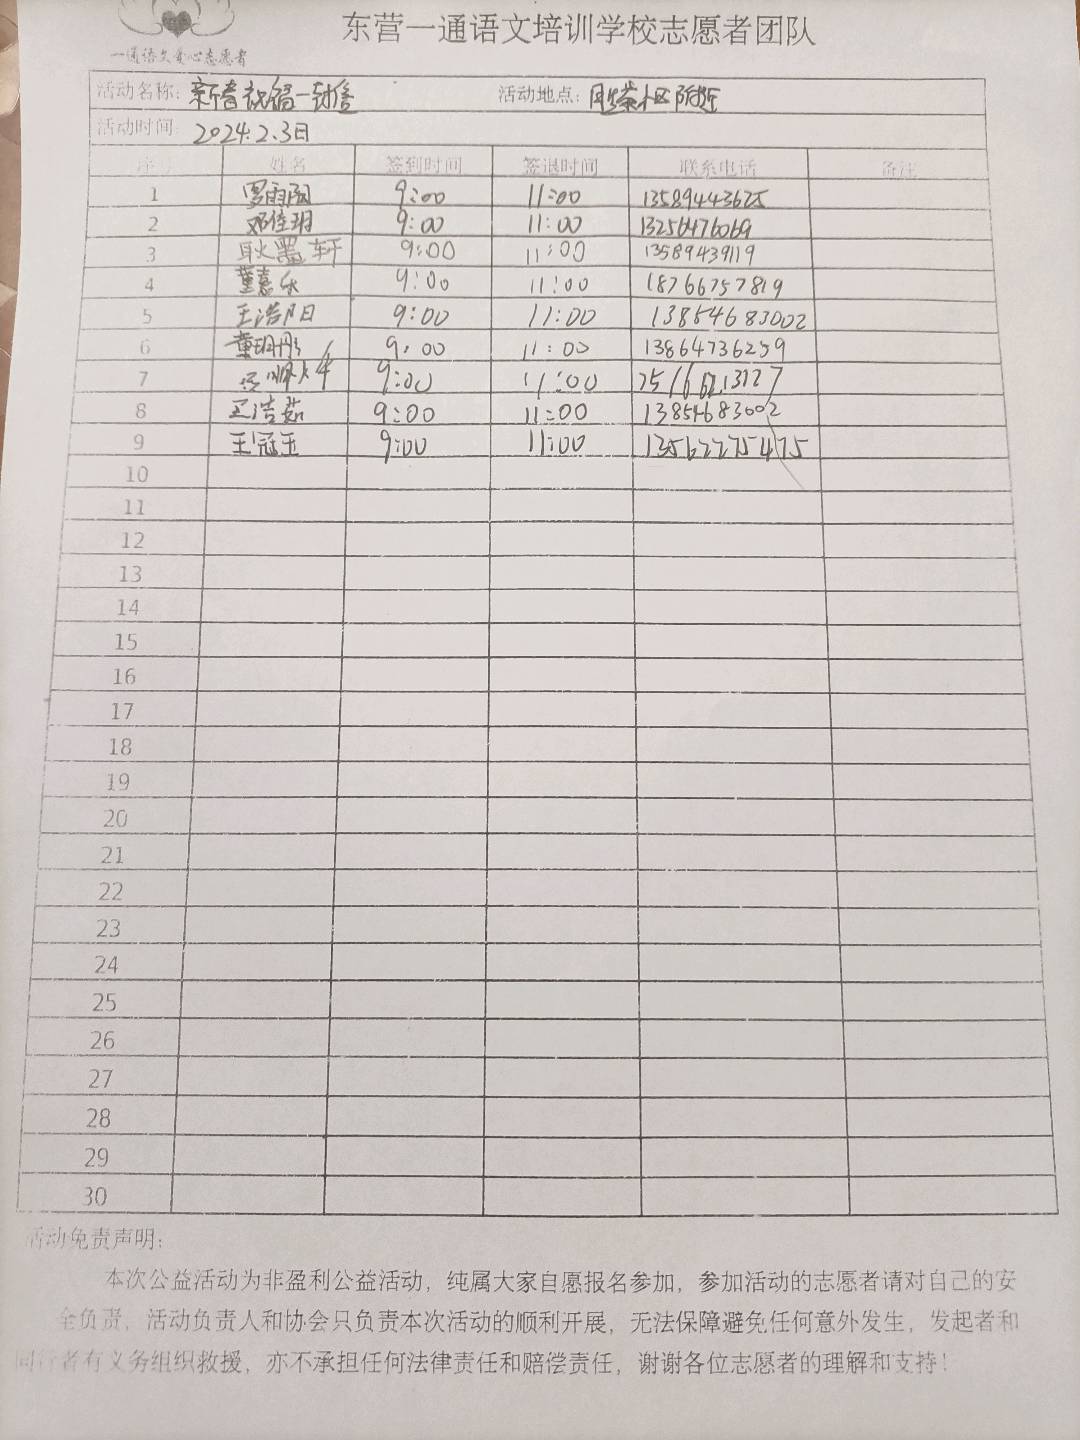 东营一通语文培训学校志愿者团队
一通语文爱心志愿者
活动名称: 新春祝福一封信 活动地点: 附近
活动时间: 2024.2.3日
序号 姓名 签到时间 签退时间 联系电话 备注
1 罗雨阳 9:00 11:00 13589443625
2 邓佳玥 9:00 11:00 13256476069
3 耿墨轩 9:00 11:00 13589439119
4 董嘉乐 9:00 11:00 18766757819
5 王浩阳 9:00 11:00 13854683002
6 董玥彤 9:00 11:00 13864736259
7 9:00 11:00
8 王浩茹 9:00 11:00 13854683002
9 王冠玉 9:00 11:00 13562275475
10
11
12
13
14
15
16
17
18
19
20
21
22
23
24
25
26
27
28
29
30
活动免责声明:
本次公益活动为非盈利公益活动，纯属大家自愿报名参加，参加活动的志愿者请对自己的安
全负责，活动负责人和协会只负责本次活动的顺利开展，无法保障避免任何意外发生，发起者和
同行者有义务组织救援，亦不承担任何法律责任和赔偿责任，谢谢各位志愿者的理解和支持！